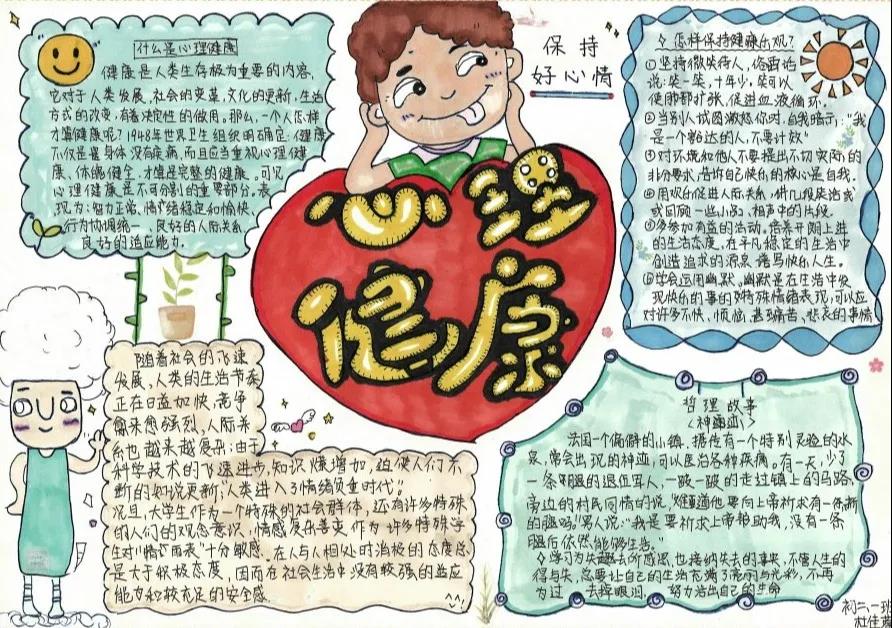 什么是心理健康
健康是人类生存极为重要的内容,
它对于人类发展,社会的变革,文化的更新,生活
方式的改变,有着决定性的作用。那么,一个人怎样
才算健康呢?1948年世界卫生组织明确定:健康
不仅是身体没有疾病,而且应当重视心理健
康、体魄健全,才是完整的健康。可见
心理健康是不可分割的重要部分。表
现为:智力正常、情绪稳定和愉快、
行为协调统一、良好的人际关系,
良好的适应能力。
保持
好心情
心理
健康
怎样保持健康乐观?
①坚持微笑待人,俗语话
说:笑一笑,十年少,笑可以
使肺部扩张,促进血液循环。
②当别人试图激怒你时,自我暗示:"我
是一个豁达的人,不要计效"
③对环境和他人不要提出不切实际的
非分要求,告诉自己快乐的核心是自我。
④用欢乐促进人际关系,讲几段笑话或
或回顾一些小品,相声中的片段。
⑤多参加有益的活动。培养开朗上进
的生活态度,在平凡稳定的生活中
创造追求的源泉,谱写快乐人生。
⑥学会运用幽默。幽默是在生活中发
现快乐的事的特殊情绪表现,可以应
对许多不快、烦恼、甚至痛苦、悲哀的事情
随着社会的飞速
发展,人类的生活节奏
正在日益加快,竞争
愈来愈强烈,人际关
系也越来越复杂;由于
科学技术的飞速进步,知识爆增加,迫使人们不
断的知识更新;人类进入了情绪负重时代"。
况且,大学生作为一个特殊的社会群体,还有许多特殊
的人们的观念意识,情感复杂善变,作为许多特殊学
生对"情雨表"十分敏感。在人与人相处时消极的态度总
是大于积极态度,因而在社会生活中没有较强的益应
能力和较充足的安全感。
哲理故事
《神迹》
法国一个偏僻的小镇,据传有一个特别灵验的水
泉,常会出现的神迹,可以医治各种疾病。有一天,少了
一条腿的退伍军人,一跛一跛的走过镇上的马路,
旁边的村民同情的说,"难道他要向上帝祈求有一条新
的腿吗?"男人说:"我是要祈求上帝帮助我,没有一条
腿后依然能够生活。"
学习为失去所感恩,也接纳失去的事实,不管人生的
得与失,总要让自己的生活充满了亮丽与光彩,不再
为过去掉眼泪,努力活出自己的生命
初二、一班
杜佳